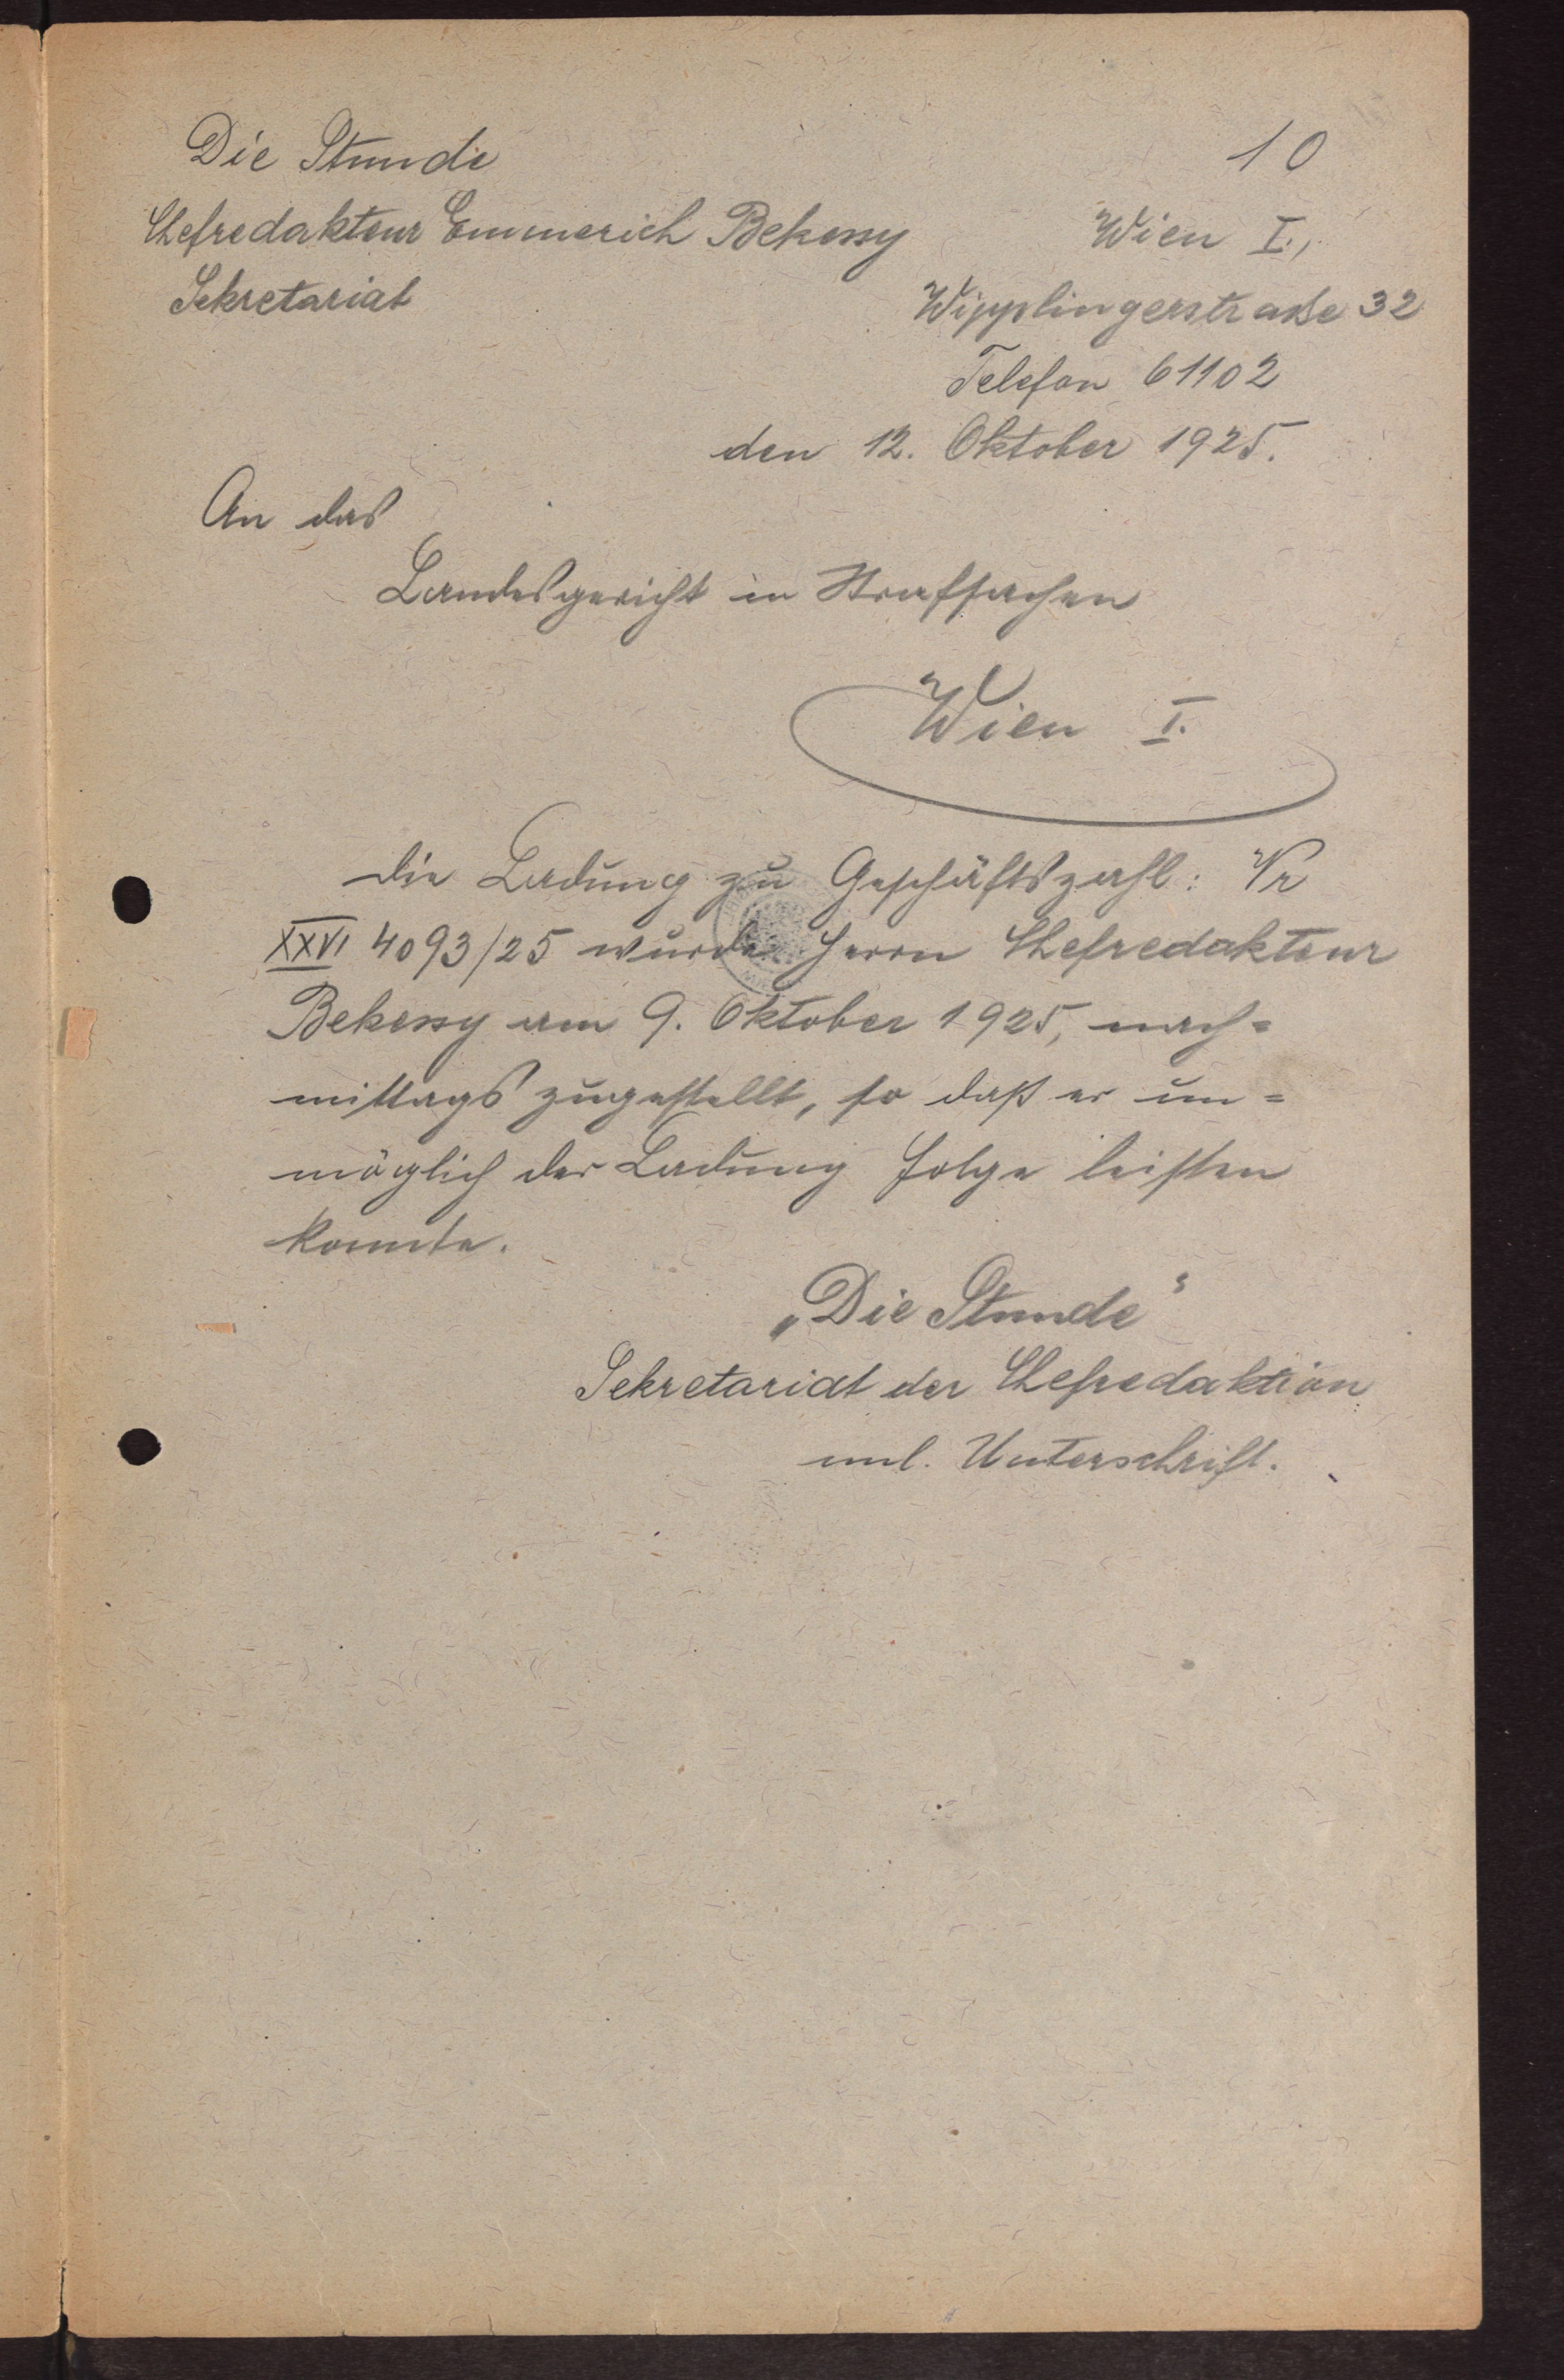 10
Die Stunde
Chefredakteur Emmerich Bekessy
Wien I.,
Sekretariat
Wipplingerstraße 32
Telefon 61102
den 12. Oktober 1925.
An das
Landesgericht in Strafsachen
Wien I.
Die Ladung zu Geschäftszahl: Vr
XXVI 4093/25 wurde Herrn Chefredakteur
Bekessy am 9. Oktober 1925, nach=
mittags zugestellt, so daß er un=
möglich der Ladung Folge leisten
konnte.
„Die Stunde“
Sekretariat der Chefredaktion
unl. Unterschrift.